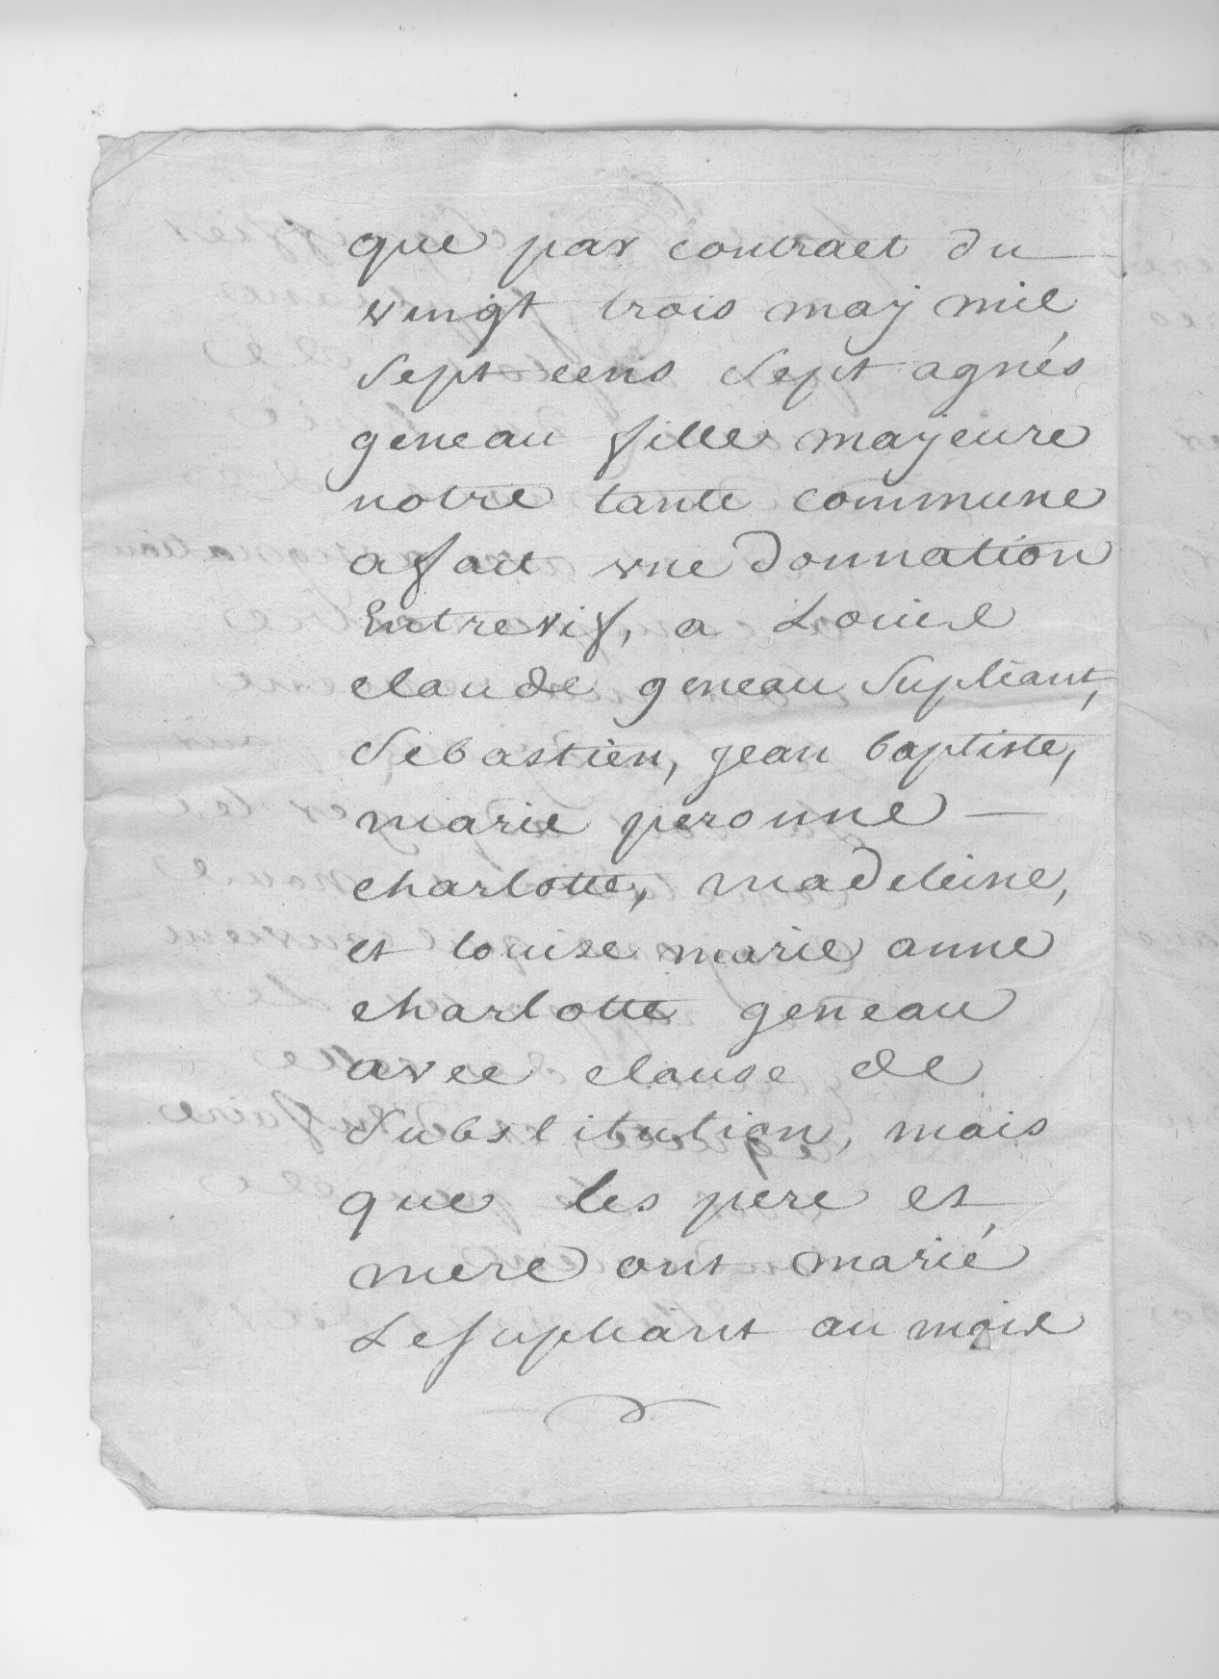 que par contract du
vingt trois may mil
sept cens sept agnés
geneau fille majeure
notre tante commune
a fait vne donnation
Entrevif, a Louis
claude geneau supliant,
sebastien, jean baptiste,
marie peronne —
charlotte, madeleine,
et louise marie anne
charlotte geneau
avec clause de
substitution, mais
que les pere et
mere ont marié
Le supliant au mois